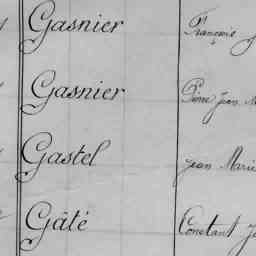 Gasnier François
Gasnier Pierre Jean
Gastel Jean Marie
Gâté Constant